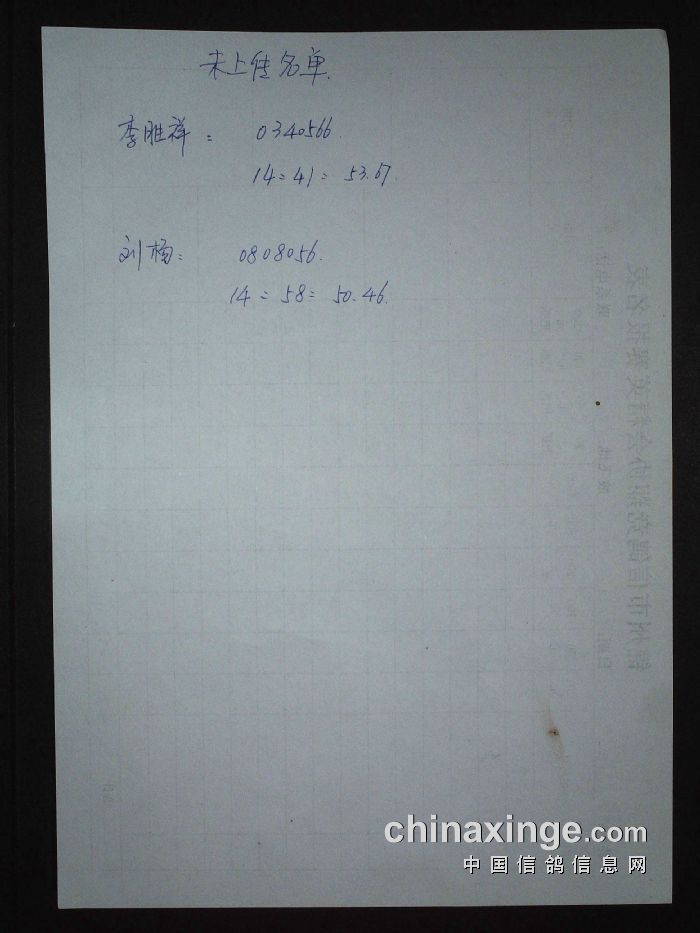 未上传名单.
李胜祥: 0340566.
14:41:53.67.
刘杨: 0808056.
14:58:50.46.
chinaxinge.com
中国信鸽信息网